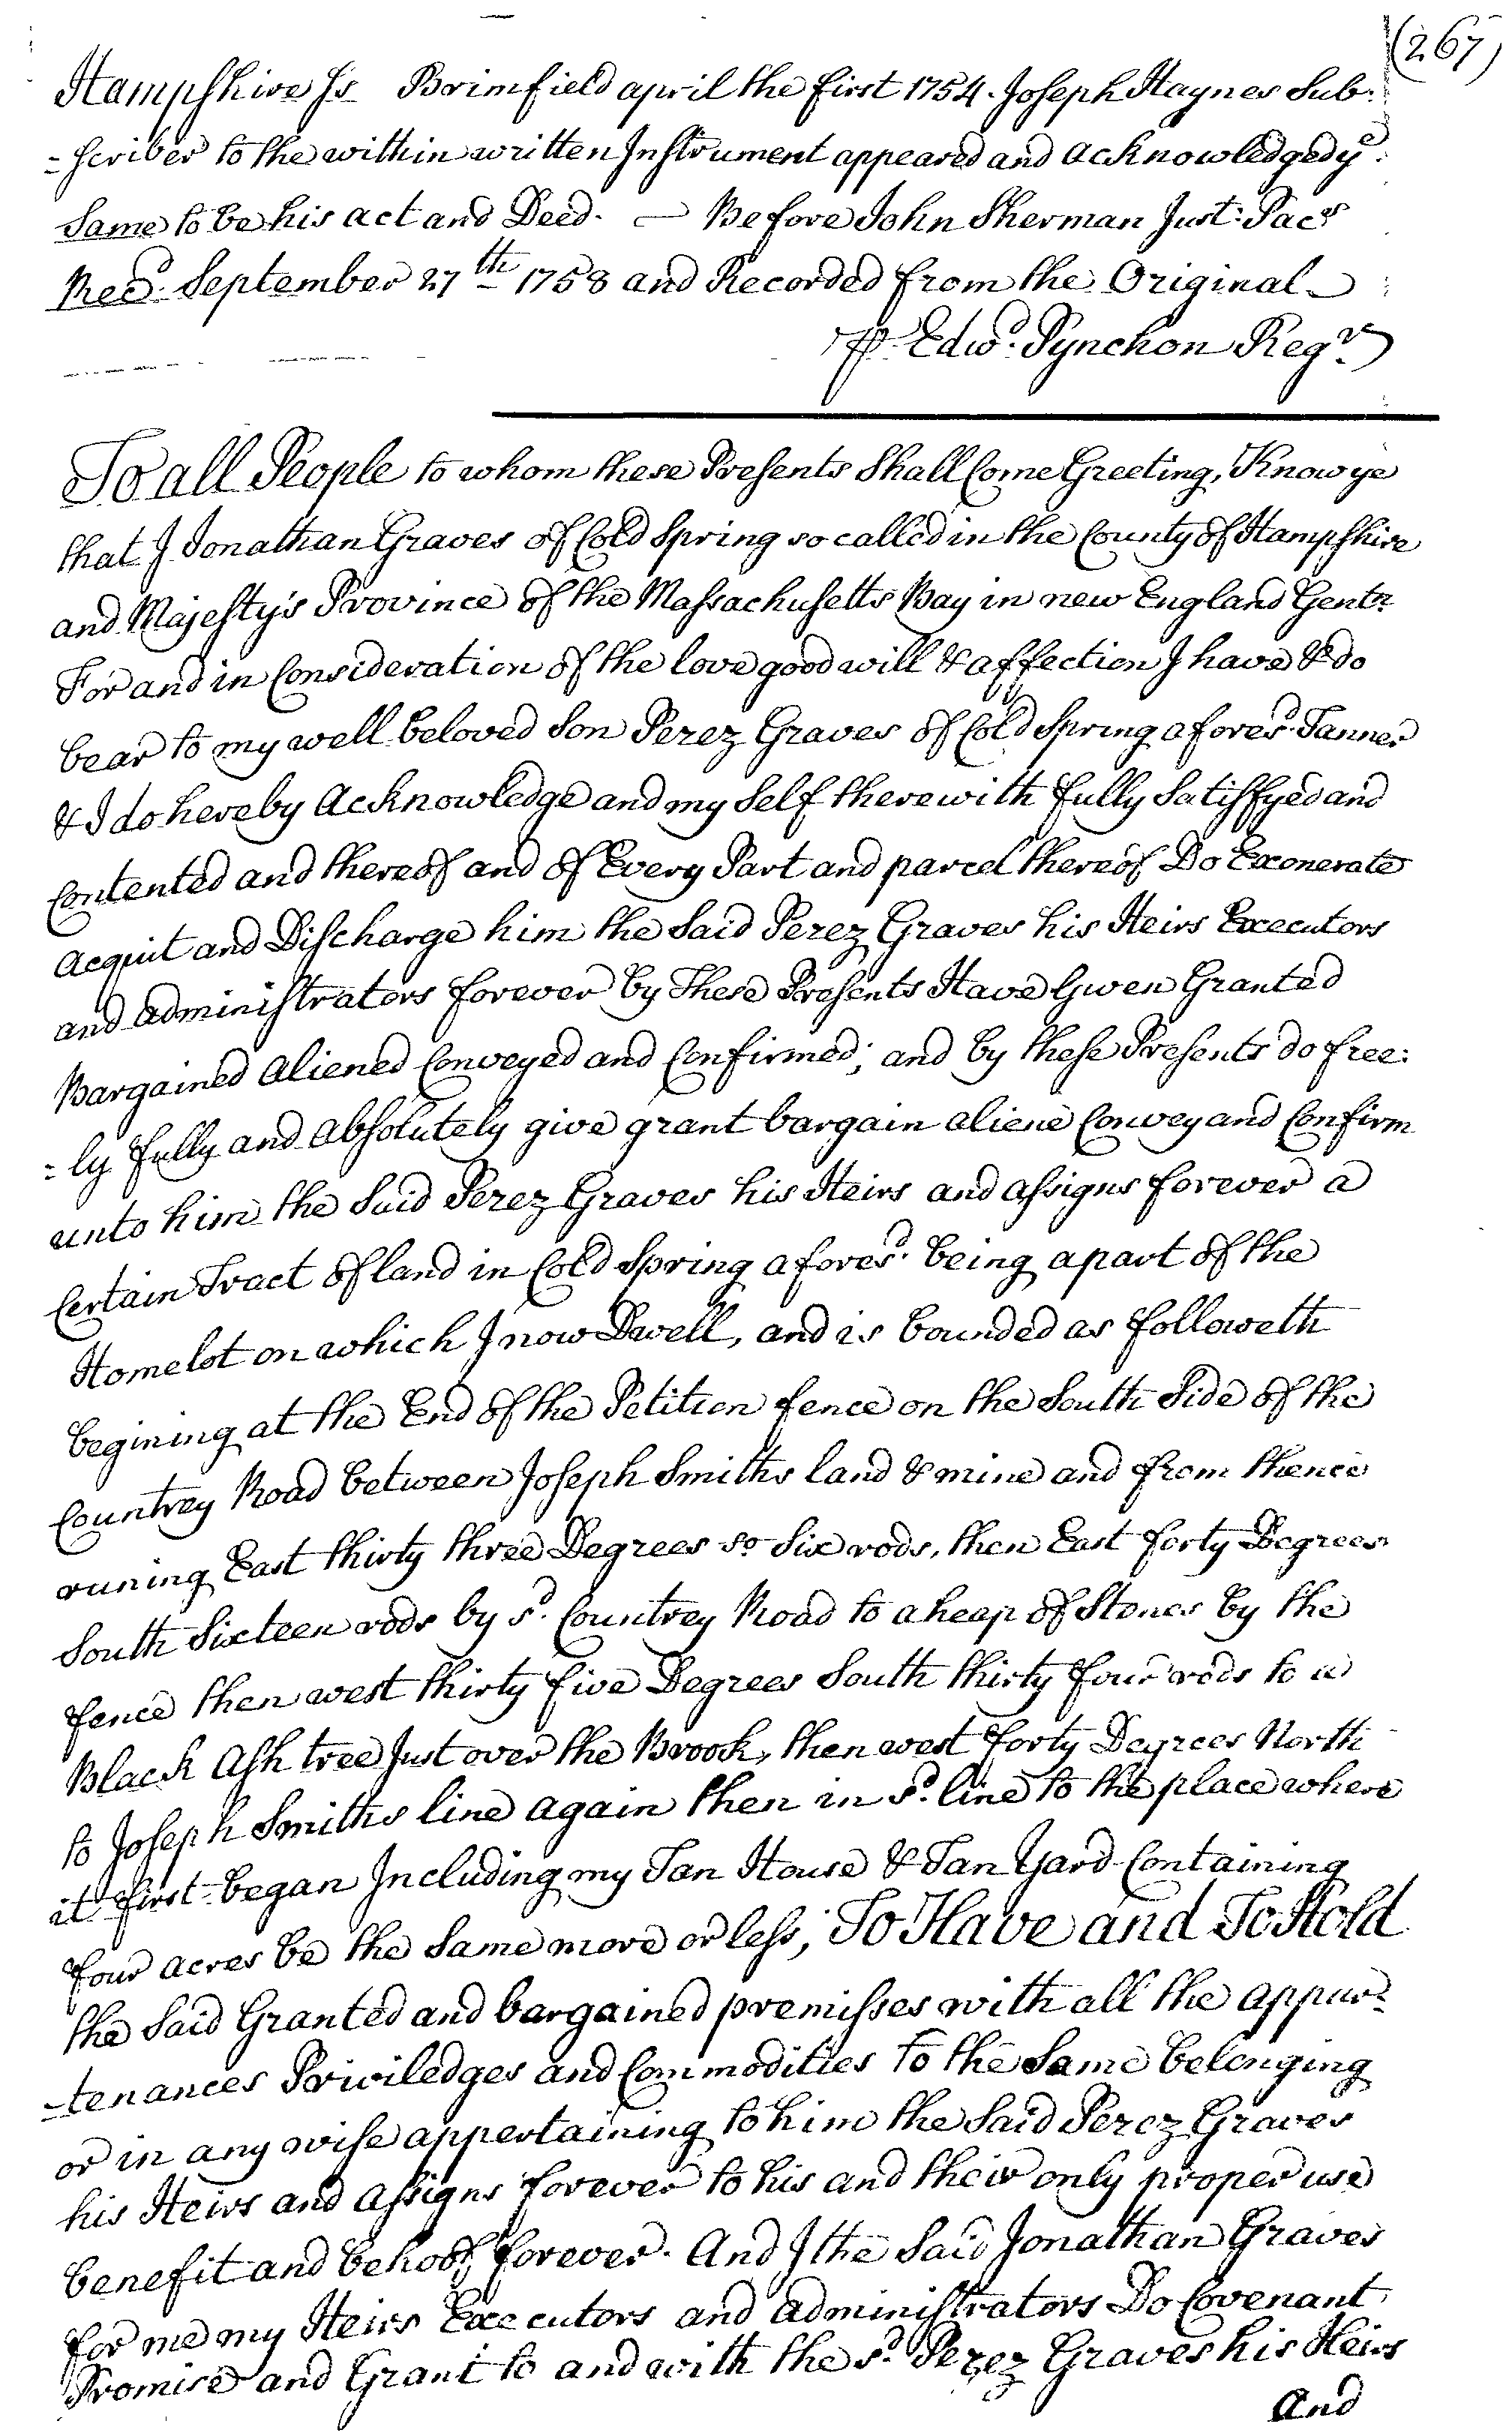 (267)
Hampshire Ss Brimfield april the first 1754. Joseph Haynes Sub:
=scriber to the within written Instrument appeared and acknowledged ye
Same to be his act and Deed. — Before John Sherman Just: Pacs
Recd. September 27th 1758 and Recorded from the Original
P Edwd. Pynchon Regr
To all People to whom these Presents Shall Come Greeting, Know ye
that I Jonathan Graves of Cold Spring so called in the County of Hampshire
and Majesty's Province of the Massachusetts Bay in new England Gentn
For and in Consideration of the love good will & affection I have & do
bear to my well beloved Son Perez Graves of Cold Spring aforesd. Tanner
& I do hereby Acknowledge and my Self therewith fully Satisfyed and
Contented and thereof and of Every Part and parcel thereof Do Exonerate
Acquit and Discharge him the Said Perez Graves his Heirs Executors
and administrators forever by These Presents Have Given Granted
Bargained Aliened Conveyed and Confirmed; and by these Presents do free:
=ly fully and absolutely give grant bargain aliene Convey and Confirm
unto him the Said Perez Graves his Heirs and assigns forever a
Certain Tract of land in Cold Spring aforesd. being a part of the
Homelot on which I now Dwell, and is bounded as followeth
begining at the End of the Petition fence on the South Side of the
Countrey Road between Joseph Smiths land & mine and from thence
runing East thirty three Degrees So Six rods, then East forty Degrees
South Sixteen rods by sd. Countrey Road to a heap of Stones by the
fence then west thirty five Degrees South thirty four rods to a
Black Ash tree Just over the Brook, then west forty Degrees North
to Joseph Smiths line again then in sd. line to the place where
it first began Including my Tan House & Tan Yard Containing
four acres be the Same more or less; To Have and To Hold
the Said Granted and bargained premisses with all the appur:
-tenances Priviledges and Commodities to the Same belonging
or in any wise appertaining to him the Said Perez Graves
his Heirs and assigns forever to his and their only proper use
benefit and behoof forever. And I the Said Jonathan Graves
for me my Heirs Executors and administrators Do Covenant
Promise and Grant to and with the sd. Perez Graves his Heirs
And